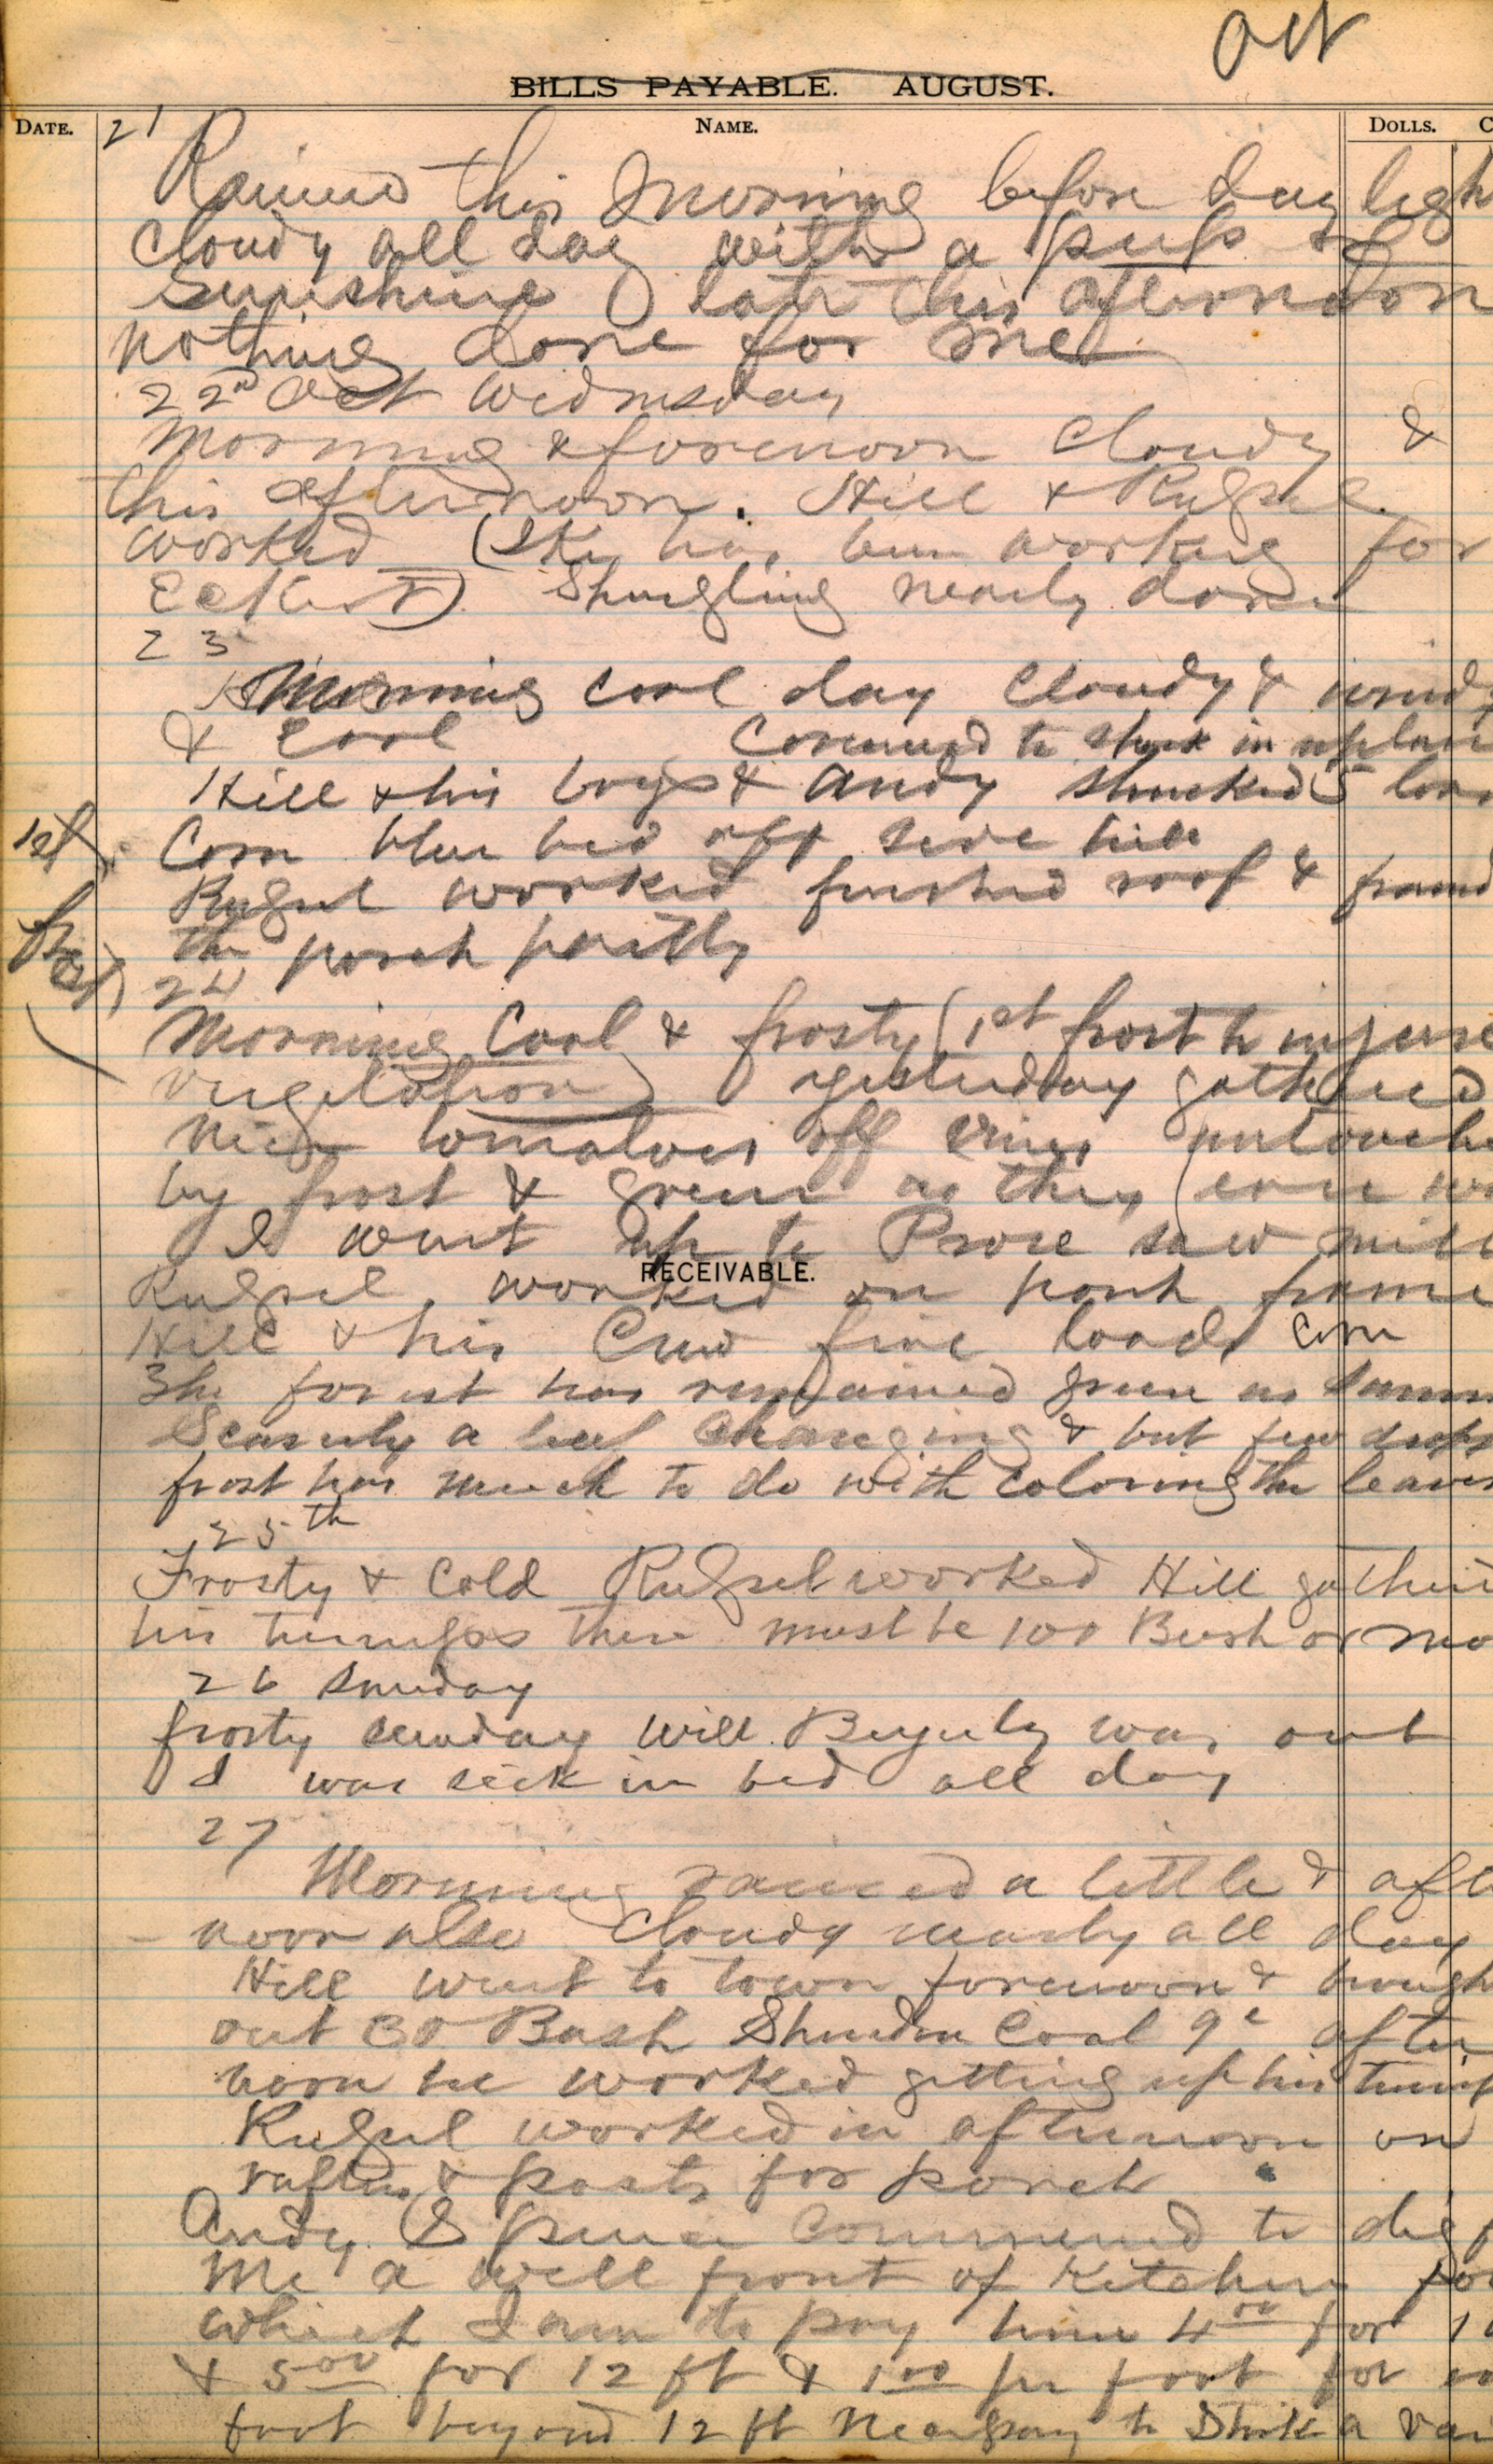 Oct
BILLS PAYABLE. AUGUST.
DATE. 21 NAME. DOLLS. C
Rained this morning before day ligh
Cloudy all day with a peep of
Sunshine late this afternoon
nothing done for me
22nd Oct Wednesday
Morning & forenoon Cloudy &
this afternoon. Hill & Rufsel
worked (Sky has been working for
Eckert) Shingling nearly done
23
Morning cool day Cloudy & windy
& cool Commenced to shuck in upland
Hill & his boys & Andy shucked 5 loa
1st Corn blue bed off side hill
Rufsel worked finished roof & framed
the porch partly
frost 24
Morning Cool & frosty (1st frost to injure
vegetation) yesterday gathered
nice tomatoes off vines untouche
by frost & green as they ever we
I went up to Prose saw mill
RECEIVABLE.
Rufsel worked on porch frame
Hill & his Crew five loads corn
The forest has remained green as summ
Scarcely a leaf changing & but few drops
frost has much to do with coloring the leaves
25th
Frosty & Cold Rufsel worked Hill gathered
his turnips there must be 100 Bush or mo
26 Sunday
frosty sunday Will was out
I was sick in bed all day
27
Morning rained a little & aft
noon also Cloudy nearly all day
Hill went to town forenoon & brough
out 30 Bush Coal 9c after
noon he worked getting up his turnip
Rufsel worked in afternoon on
rafters & posts for porch
Andy Commenced to dig f
Me a well front of Kitchen for
which I am to pay him 4.00 for 10
& 5.00 for 12 ft & 1.00 per foot for ea
foot beyond 12 ft Necessary to Strike a vei